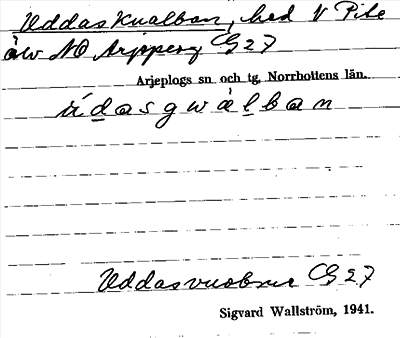 Uddaskualban, hed V Pite
älv NO Arjeplog CG 27
Arjeplogs sn och tg, Norrbottens län.
údasgwàlban
Uddasvuobme CG 27
Sigvard Wallström, 1941.